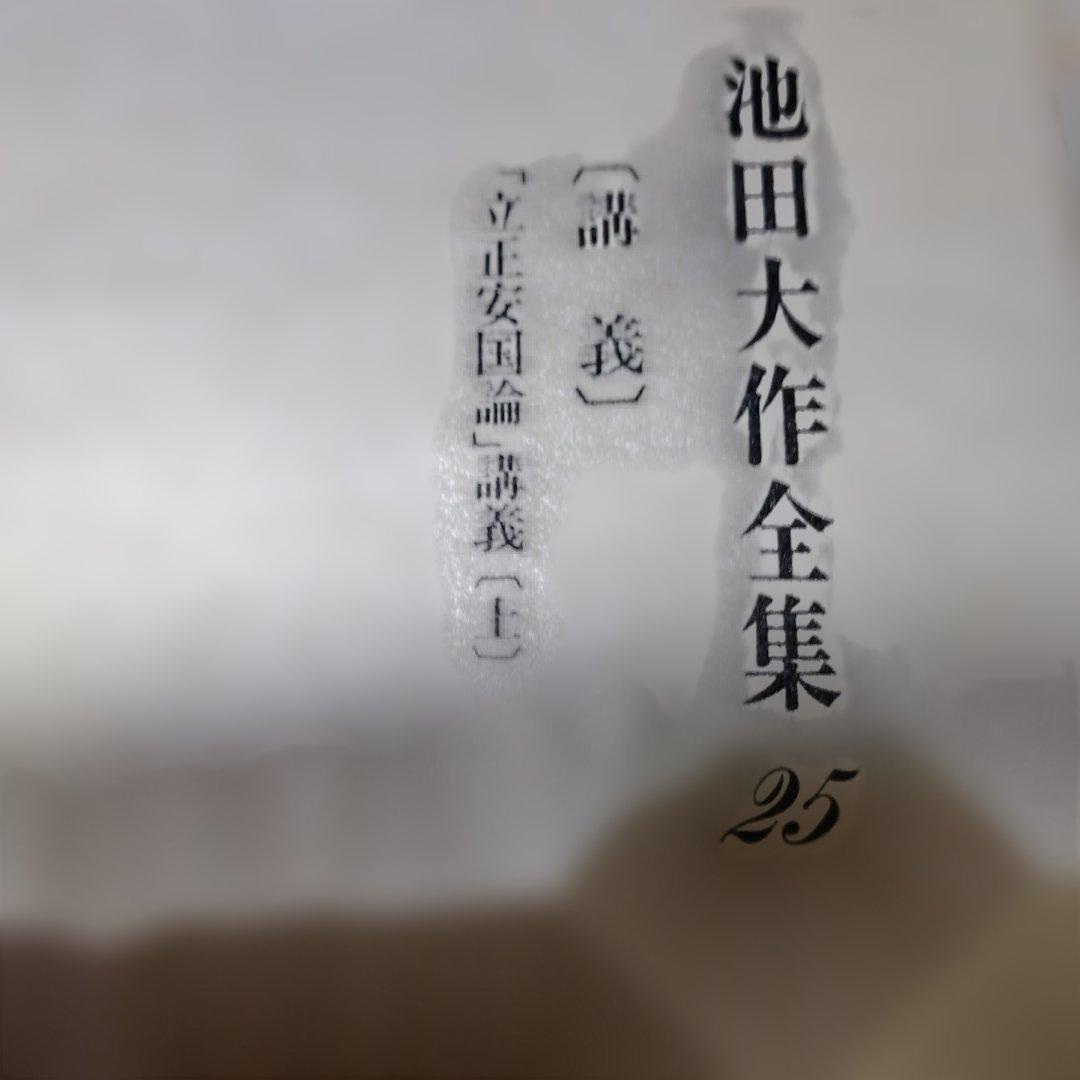 池田大作全集 25
〔講 義〕
「立正安国論」講義〔上〕